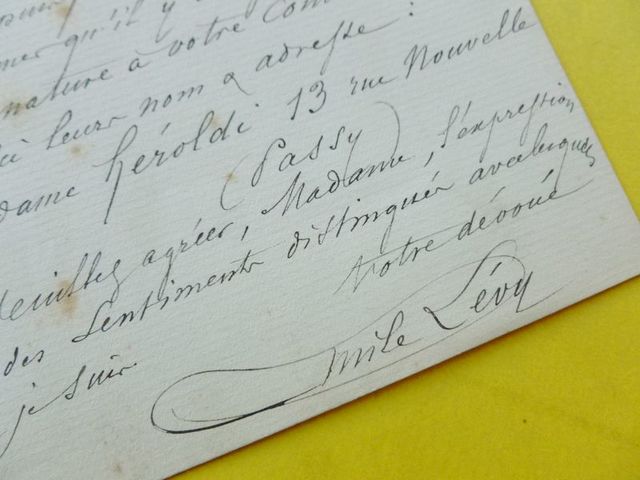 qu'il y
nature à votre
leurs nom & adresse :
dame Héroldé 13 rue Nouvelle
(Passy)
Veuillez agréer, Madame, l'expression
des sentiments distingués avec lesquels
je suis votre dévoué
Emile Lévy